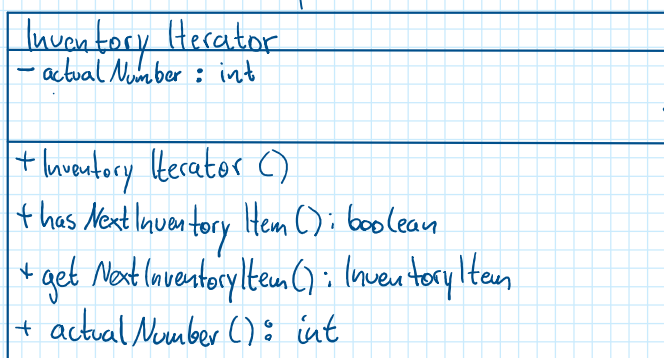 Inventory Iterator
- actualNumber : int
+ Inventory Iterator ()
+ has NextInventory Item () : boolean
+ get NextInventoryItem() : InventoryItem
+ actualNumber () : int